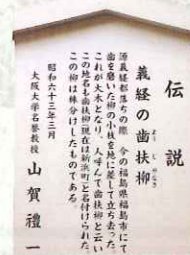 伝説
義経の歯扶柳
源義経都落ちの際 今の福島県福島市にて
歯を磨いた柳の小枝を地に差して立ち去った。
これが大木となり、人呼んで歯扶柳と云い
この地名も歯扶柳(現在は新浜町)と名付けられた。
この柳は株分けしたものである
昭和六十三年三月
大阪大学名誉教授
山賀禮一